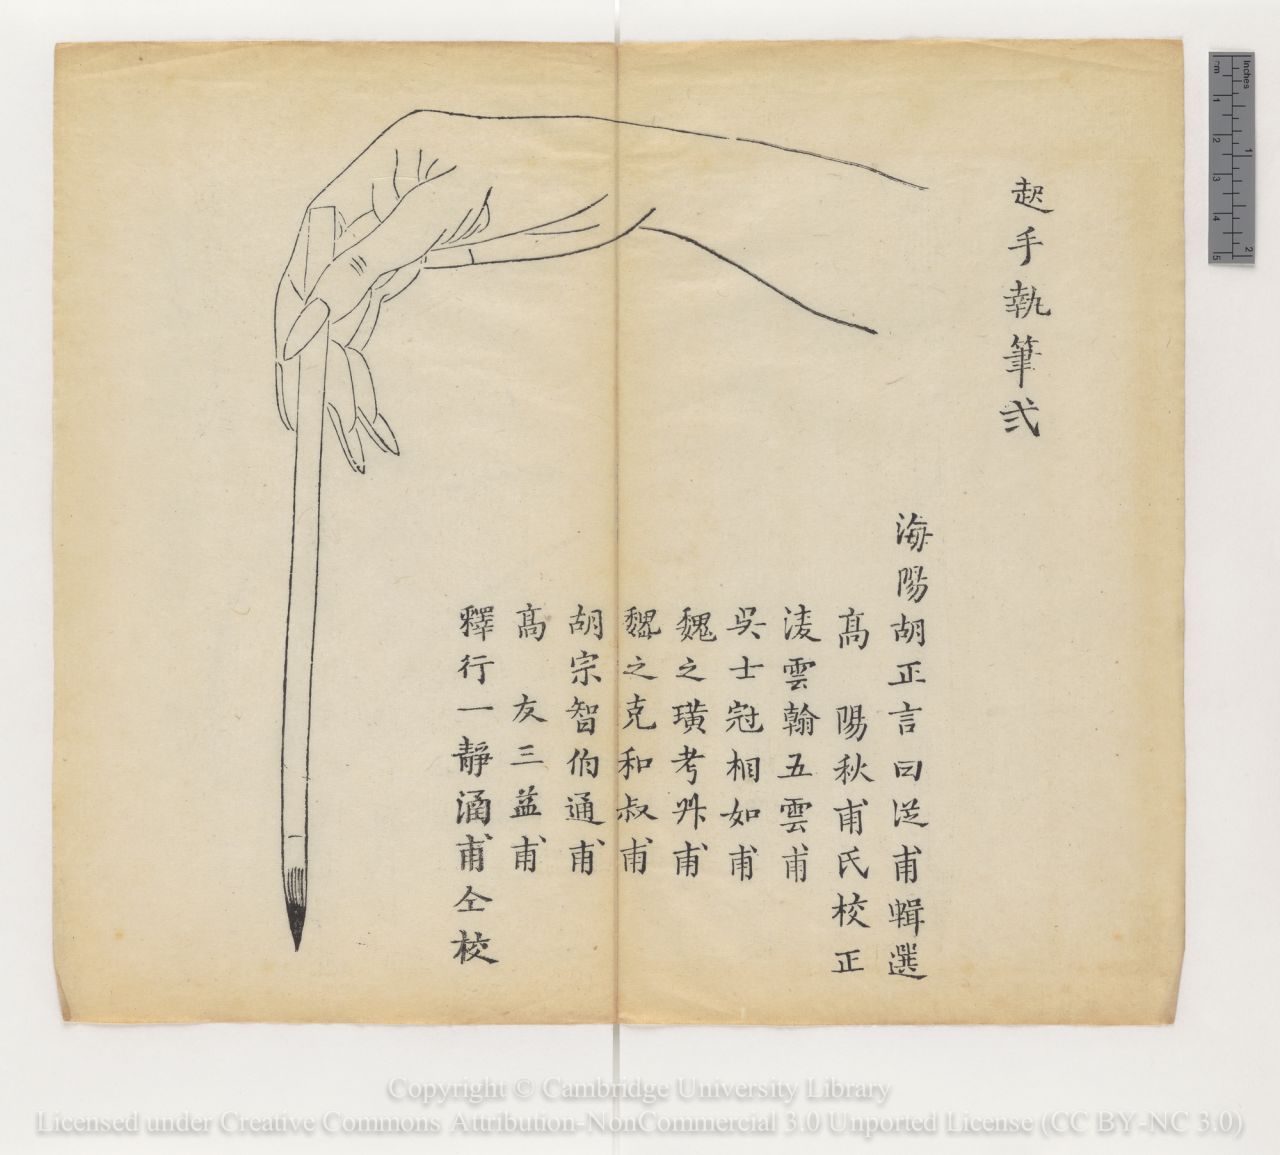 起手執筆式
海陽胡正言曰從甫輯選
高　陽秋甫氏校正
淩雲翰五雲甫
吳士冠相如甫
魏之璜考叔甫
魏之克和叔甫
胡宗智伯通甫
高　友三益甫
釋行一靜涵甫仝校
Inches
1
2
cm
1
2
3
4
5
Copyright © Cambridge University Library
Licensed under Creative Commons Attribution-NonCommercial 3.0 Unported License (CC BY-NC 3.0)